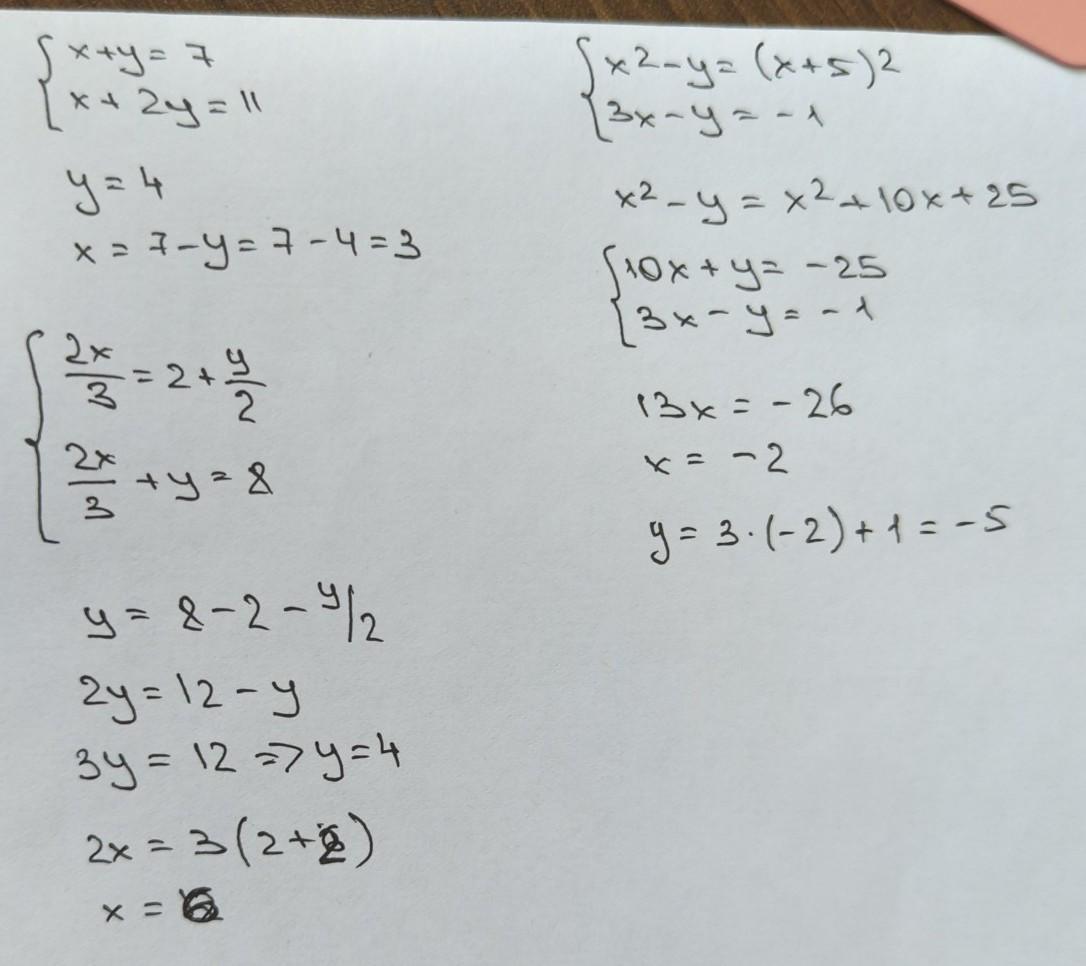 x+y= 7
x+ 2y= 11
y= 4
x = 7-y= 7-4=3
2x/3 = 2+ y/2
2x/3 + y = 8
y= 8-2- y/2
2y=12-y
3y= 12 => y=4
2x = 3(2+2)
x = 6
x²-y= (x+5)²
3x-y= -1
x²-y = x²+10x+25
10x+y= -25
3x-y= -1
13x = -26
x = -2
y= 3·(-2)+1= -5